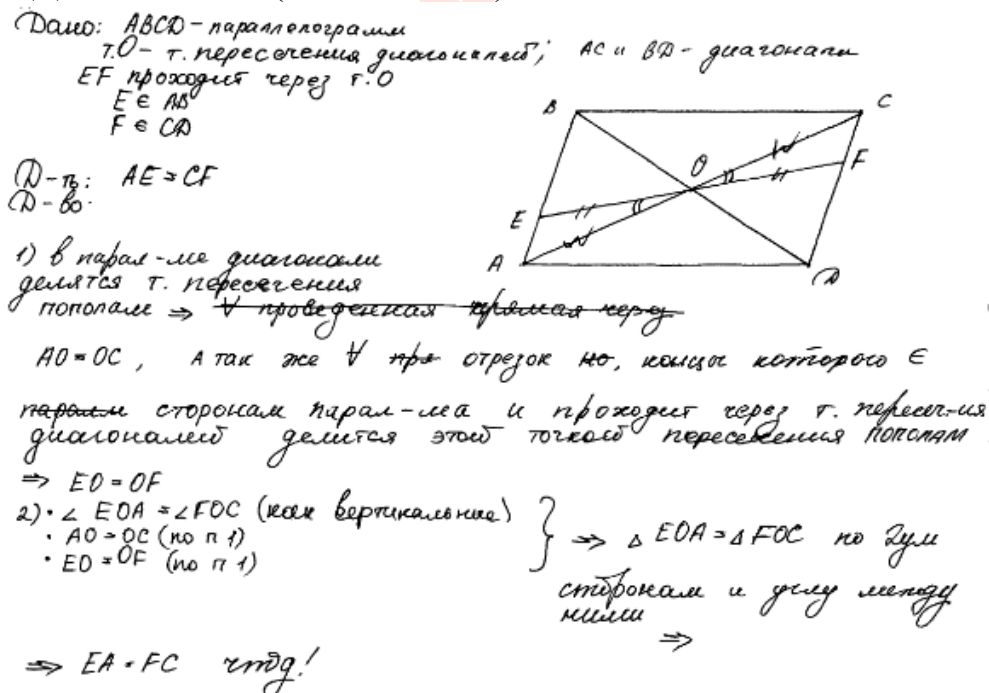 Дано: ABCD - параллелограмм
т.O - т. пересечения диагоналей; AC и BD - диагонали
EF проходит через т.O
E ∈ AB
F ∈ CD
Д-ть: AE = CF
Д-во:
B
C
O
F
E
A
D
1) В парал-ме диагонали
делятся т. пересечения
пополам ⇒ ∀ проведенная прямая через
AO = OC, А так же ∀ пря отрезок но, концы которого ∈
паралл сторонам парал-ма и проходит через т. пересеч-ия
диагоналей делится этой точкой пересечения пополам
⇒ EO = OF
2) · ∠ EOA = ∠FOC (как вертикальные)
· AO = OC (по п 1)
· EO = OF (по п 1)
} ⇒ △ EOA = △ FOC по 2ум
сторонам и углу между
ними
⇒
⇒ EA = FC чтд!